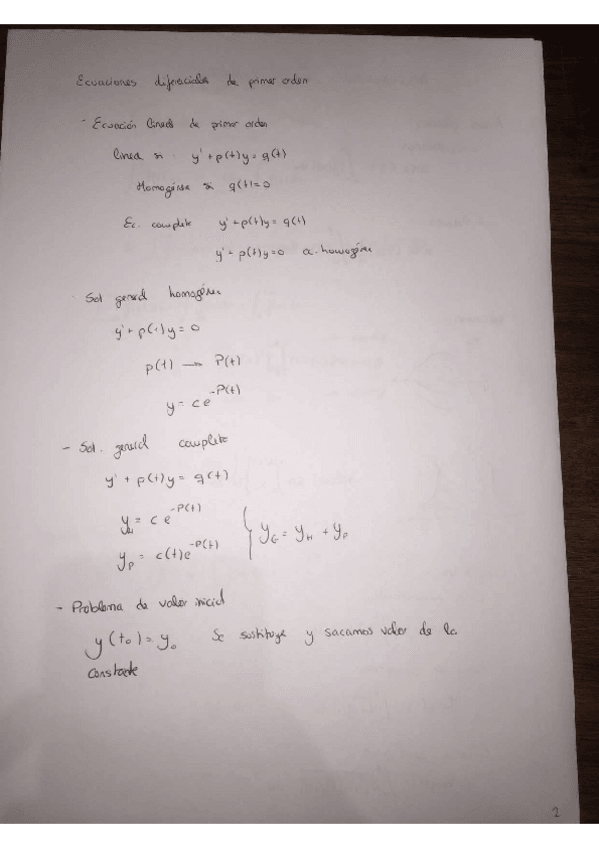 Ecuaciones diferenciales de primer orden
- Ecuación lineal de primer orden
Linea si : y' + p(t)y = q(t)
Homogénea si q(t)=0
Ec. completa y' + p(t)y = q(t)
y' + p(t)y = 0 homogénea
- Sol general homogénea
y' + p(t)y = 0
p(t) → P(t)
y = ce^-P(t)
- Sol. general completa
y' + p(t)y = q(t)
y_H = c e^-P(t)
y_P = c(t)e^-P(t) { y_G = y_H + y_P
- Problema de valor inicial
y(t₀) = y₀ Se sustituye y sacamos valor de la
constante
2